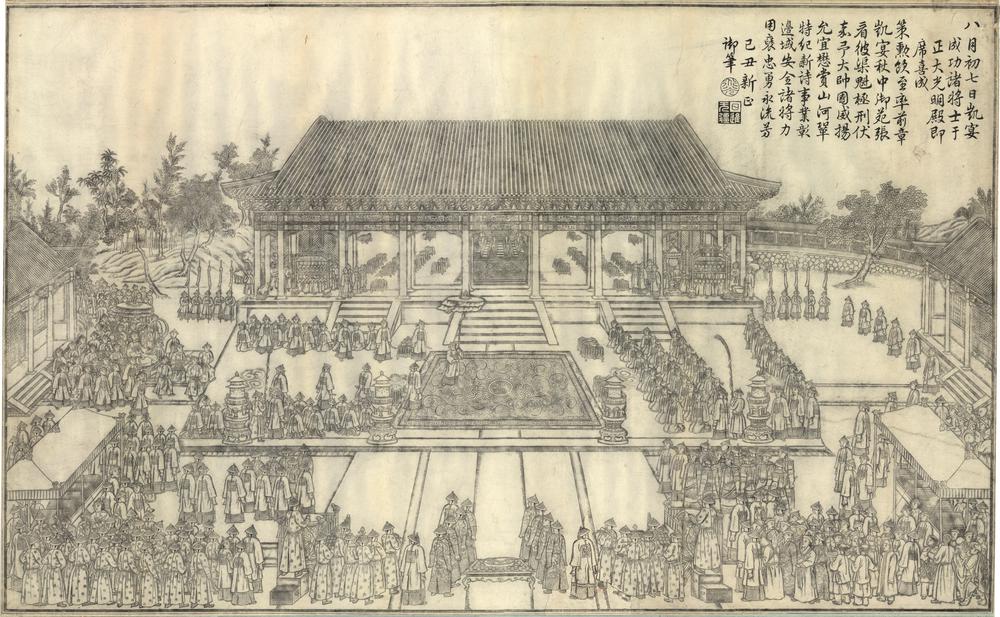 八月初七日凱宴
成功諸將士于
正大光明殿即
席喜成
策勲飲至率前章
凱宴秋中御苑張
看彼渠魁極刑伏
嘉予大帥國威揚
允宜懋賞山河
特紀新詩事業彰
邊城安全諸將力
用襃忠勇永流芳
己丑新正
御筆